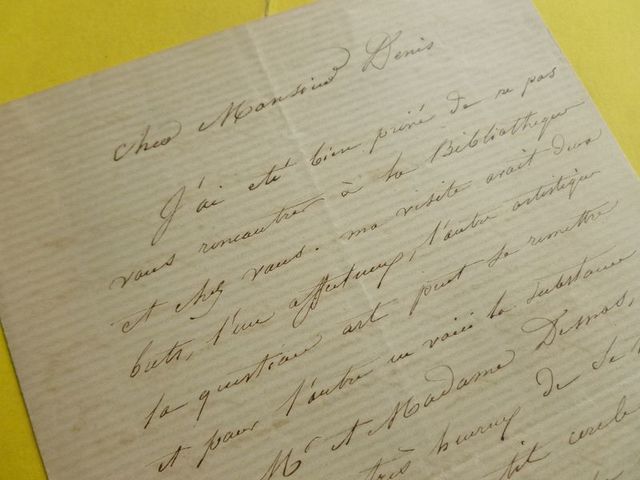 cher Monsieur Denis
J'ai été bien privé de ne pas
vous rencontrer à la Bibliothèque
et chez vous. ma visite avait deux
buts, l'un affectueux, l'autre artistique
la question art peut se remettre
et pour l'autre en voici la substance
Mr et Madame Desnos,
très heureux de